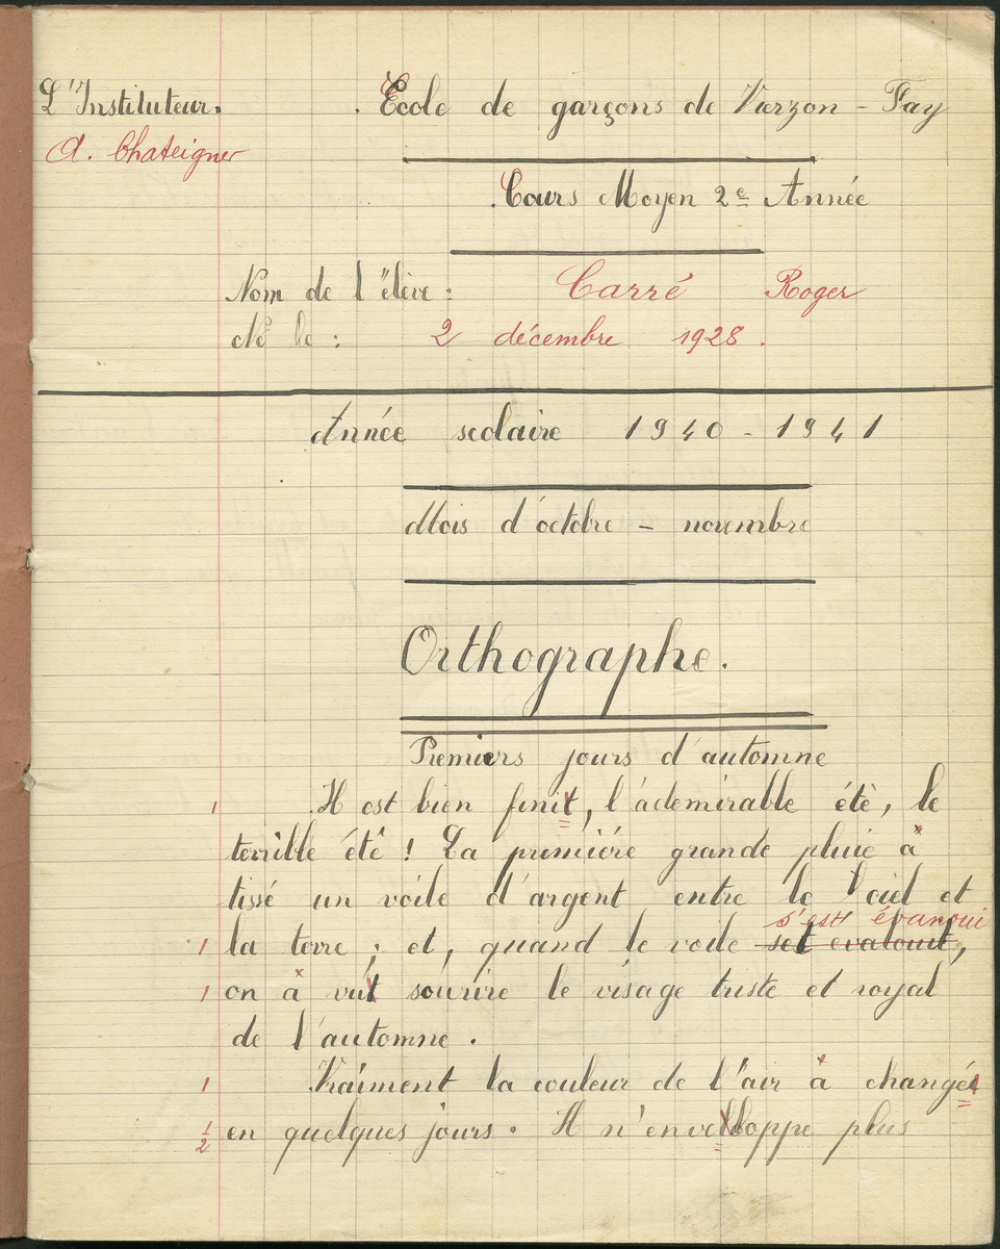 L'Instituteur. École de garçons de Vierzon - Fay
A. Chateigner
Cours Moyen 2e Année
Nom de l'élève : Carré Roger
Né le : 2 décembre 1928.
Année scolaire 1940 - 1941
Mois d'octobre - novembre
Orthographe.
Premiers jours d'automne
1 Il est bien finit, l'ademirable été, le
terrible été ! La première grande pluie à
tissé un voile d'argent entre le ciel et
s'est évanoui
1 la terre ; et, quand le voile set evalouit,
1 on à vut sourire le visage triste et royal
de l'automne.
1 Vraiment la couleur de l'air à changés
1/2 en quelques jours. Il n'envelloppe plus